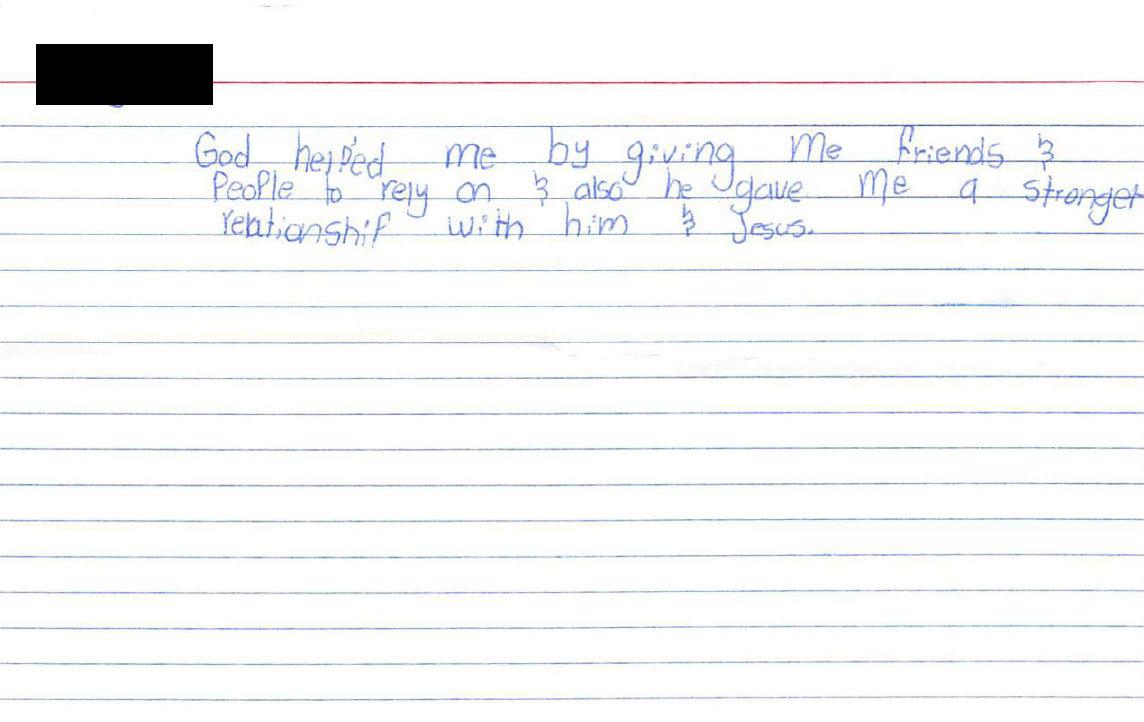 God helped me by giving me friends &
People to rely on & also he gave me a stronger
relationship with him & Jesus.